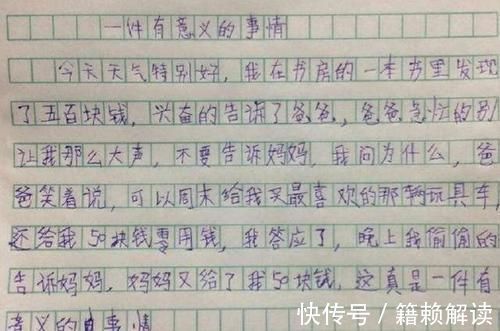 一件有意义的事情
今天天气特别好，我在书房的一本书里发现
了五百块钱，兴奋的告诉了爸爸，爸爸急忙的别
让我那么大声，不要告诉妈妈，我问为什么，爸
爸笑着说，可以周末给我买最喜欢的那辆玩具车，
还给我50块钱零用钱，我答应了，晚上我偷偷的
告诉妈妈，妈妈又给了我50块钱，这真是一件有
意义的事情
快传号／籍赖解读